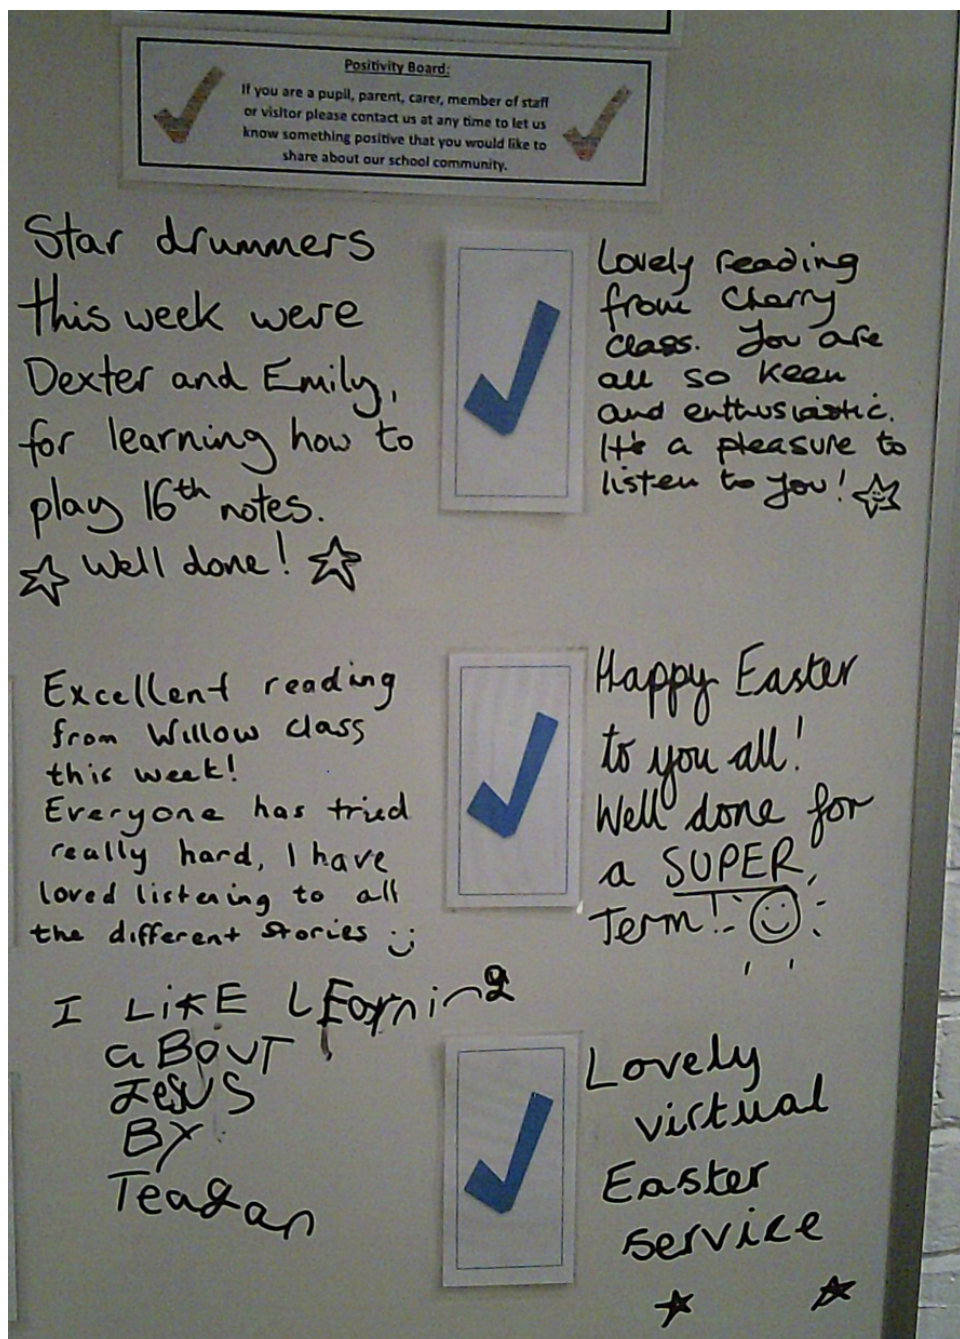 Positivity Board:
If you are a pupil, parent, carer, member of staff
or visitor please contact us at any time to let us
know something positive that you would like to
share about our school community.
Star drummers
this week were
Dexter and Emily,
for learning how to
play 16th notes.
Well done!
Lovely reading
from Cherry
class. You are
all so keen
and enthusiastic.
It's a pleasure to
listen to you!
Excellent reading
from Willow class
this week!
Everyone has tried
really hard, I have
loved listening to all
the different stories
Happy Easter
to you all!
Well done for
a SUPER
Term!
I LiKE LEarning
aBOUT
Jesus
By
Teagan
Lovely
virtual
Easter
service